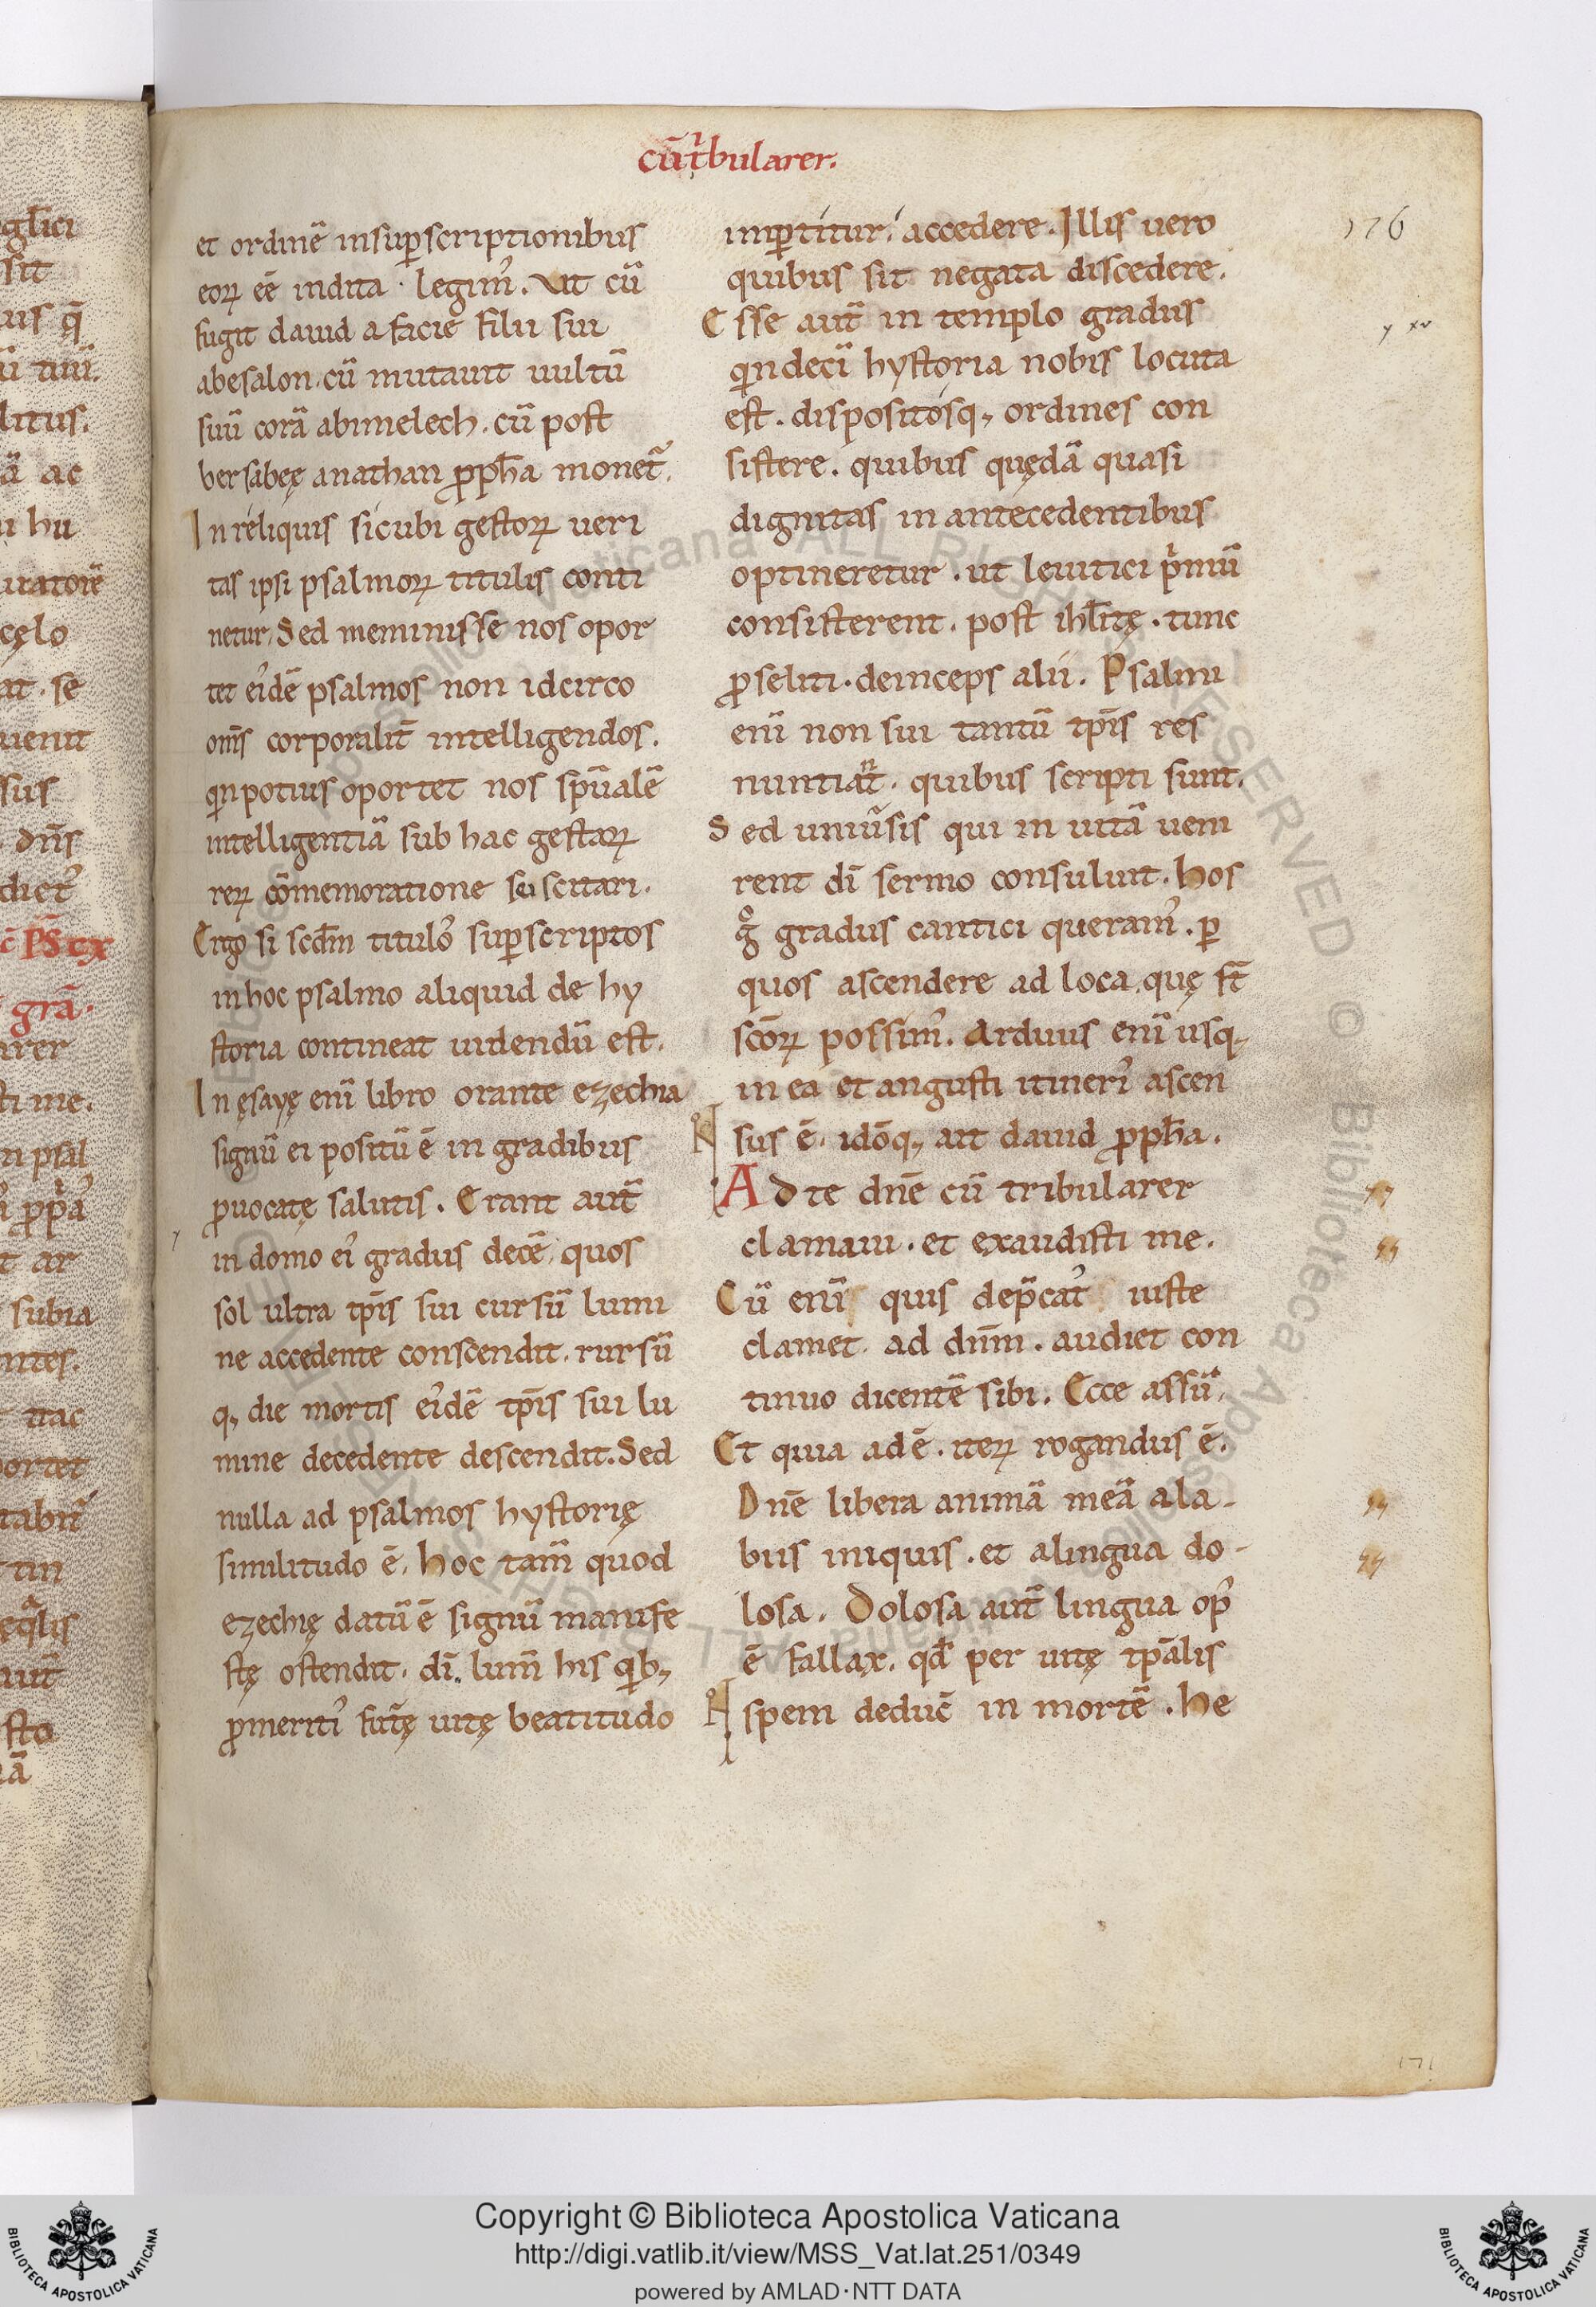 cū tͥbularer.
et ordinē insuꝑscriptionibus
eoꝝ eē indita · legim᾽. Vt cū
fugit dauid a facie filii sui
abesalon. cū mutauit uultū
suū corā abimelech. cū post
bersabeę a nathan ꝓph̄a monet᾽.
In reliquis sicubi gestoꝝ ueri
tas ipsi psalmoꝝ titulis conti
netur. Sed meminisse nos opor
tet ei᾽dē psalmos non idcirco
om̄s corporalit̄ intelligendos.
qͥn potius oportet nos sp̄ualē
intelligentiā sub hac gestaꝝ
reꝝ cōmemoratione suscitari.
Ergo si scd̄m titulo᾽ suꝑscriptos
in hoc psalmo aliquid de hy
storia contineat uidendū est.
In ęsayę eni᾽ libro orante ezechia
signū ei positū ē in gradibus
ꝓuocatę salutis. Erant aut̄
in domo ei᾽ gradus decē. quos
sol ultra tp̄is sui cursū lumi
ne accedente conscendit. rursū
q; die mortis ei᾽dē tp̄is sui lu
mine decedente descendit. Sed
nulla ad psalmos hystorię
similitudo ē. hoc tam̄ quod
ezechię datū ē signū manife
stę ostendit. dī lum̄ his qͥb;
ꝓmeriti᾽ fut᾽ę uitę beatitudo
impꝑtitur. accedere. Illis uero
quibus sit negata discedere.
Esse aut̄ in templo gradus
qͥndecī hystoria nobis locuta
est. dispositosq; ordines con
sistere. quibus quędā quasi
dignitas in antecedentibus
optineretur. ut leuitici pͥmū
consisterent. post ihl̄itę. tunc
ꝓseliti. deinceps alii. Psalmi
enī non sui tantū tp̄is res
nuntiant̄. quibus scripti sunt.
Sed uniu᾽sis qui in uitā ueni
rent dī sermo consuluit. hos
gͦ gradus cantici queram᾽. ꝑ
quos ascendere ad loca. quę st̄
sc̄oꝝ possim᾽. Arduus enī usq;
in ea et angusti itineri᾽ ascen
sus ē. idōq; ait dauid ꝓph̄a.
Ad te dn̄e cū tribularer
clamaui. et exaudisti me.
Cū enī quis dep̄cat᾽ iuste
clamet. ad dn̄m. audiet con
tinuo dicentē sibi. Ecce assū.
Et quia adē. iteꝝ rogandus ē.
Dn̄e libera animā meā a la-
biis iniquis. et a lingua do-
losa. Dolosa aut̄ lingua op᾽
ē fallax. qd̄ per uitę tp̄alis
spem deduc̄ in mortē. he
176
y xv
171
Copyright © Biblioteca Apostolica Vaticana
http://digi.vatlib.it/view/MSS_Vat.lat.251/0349
powered by AMLAD·NTT DATA
BIBLIOTECA APOSTOLICA VATICANA
BIBLIOTECA APOSTOLICA VATICANA